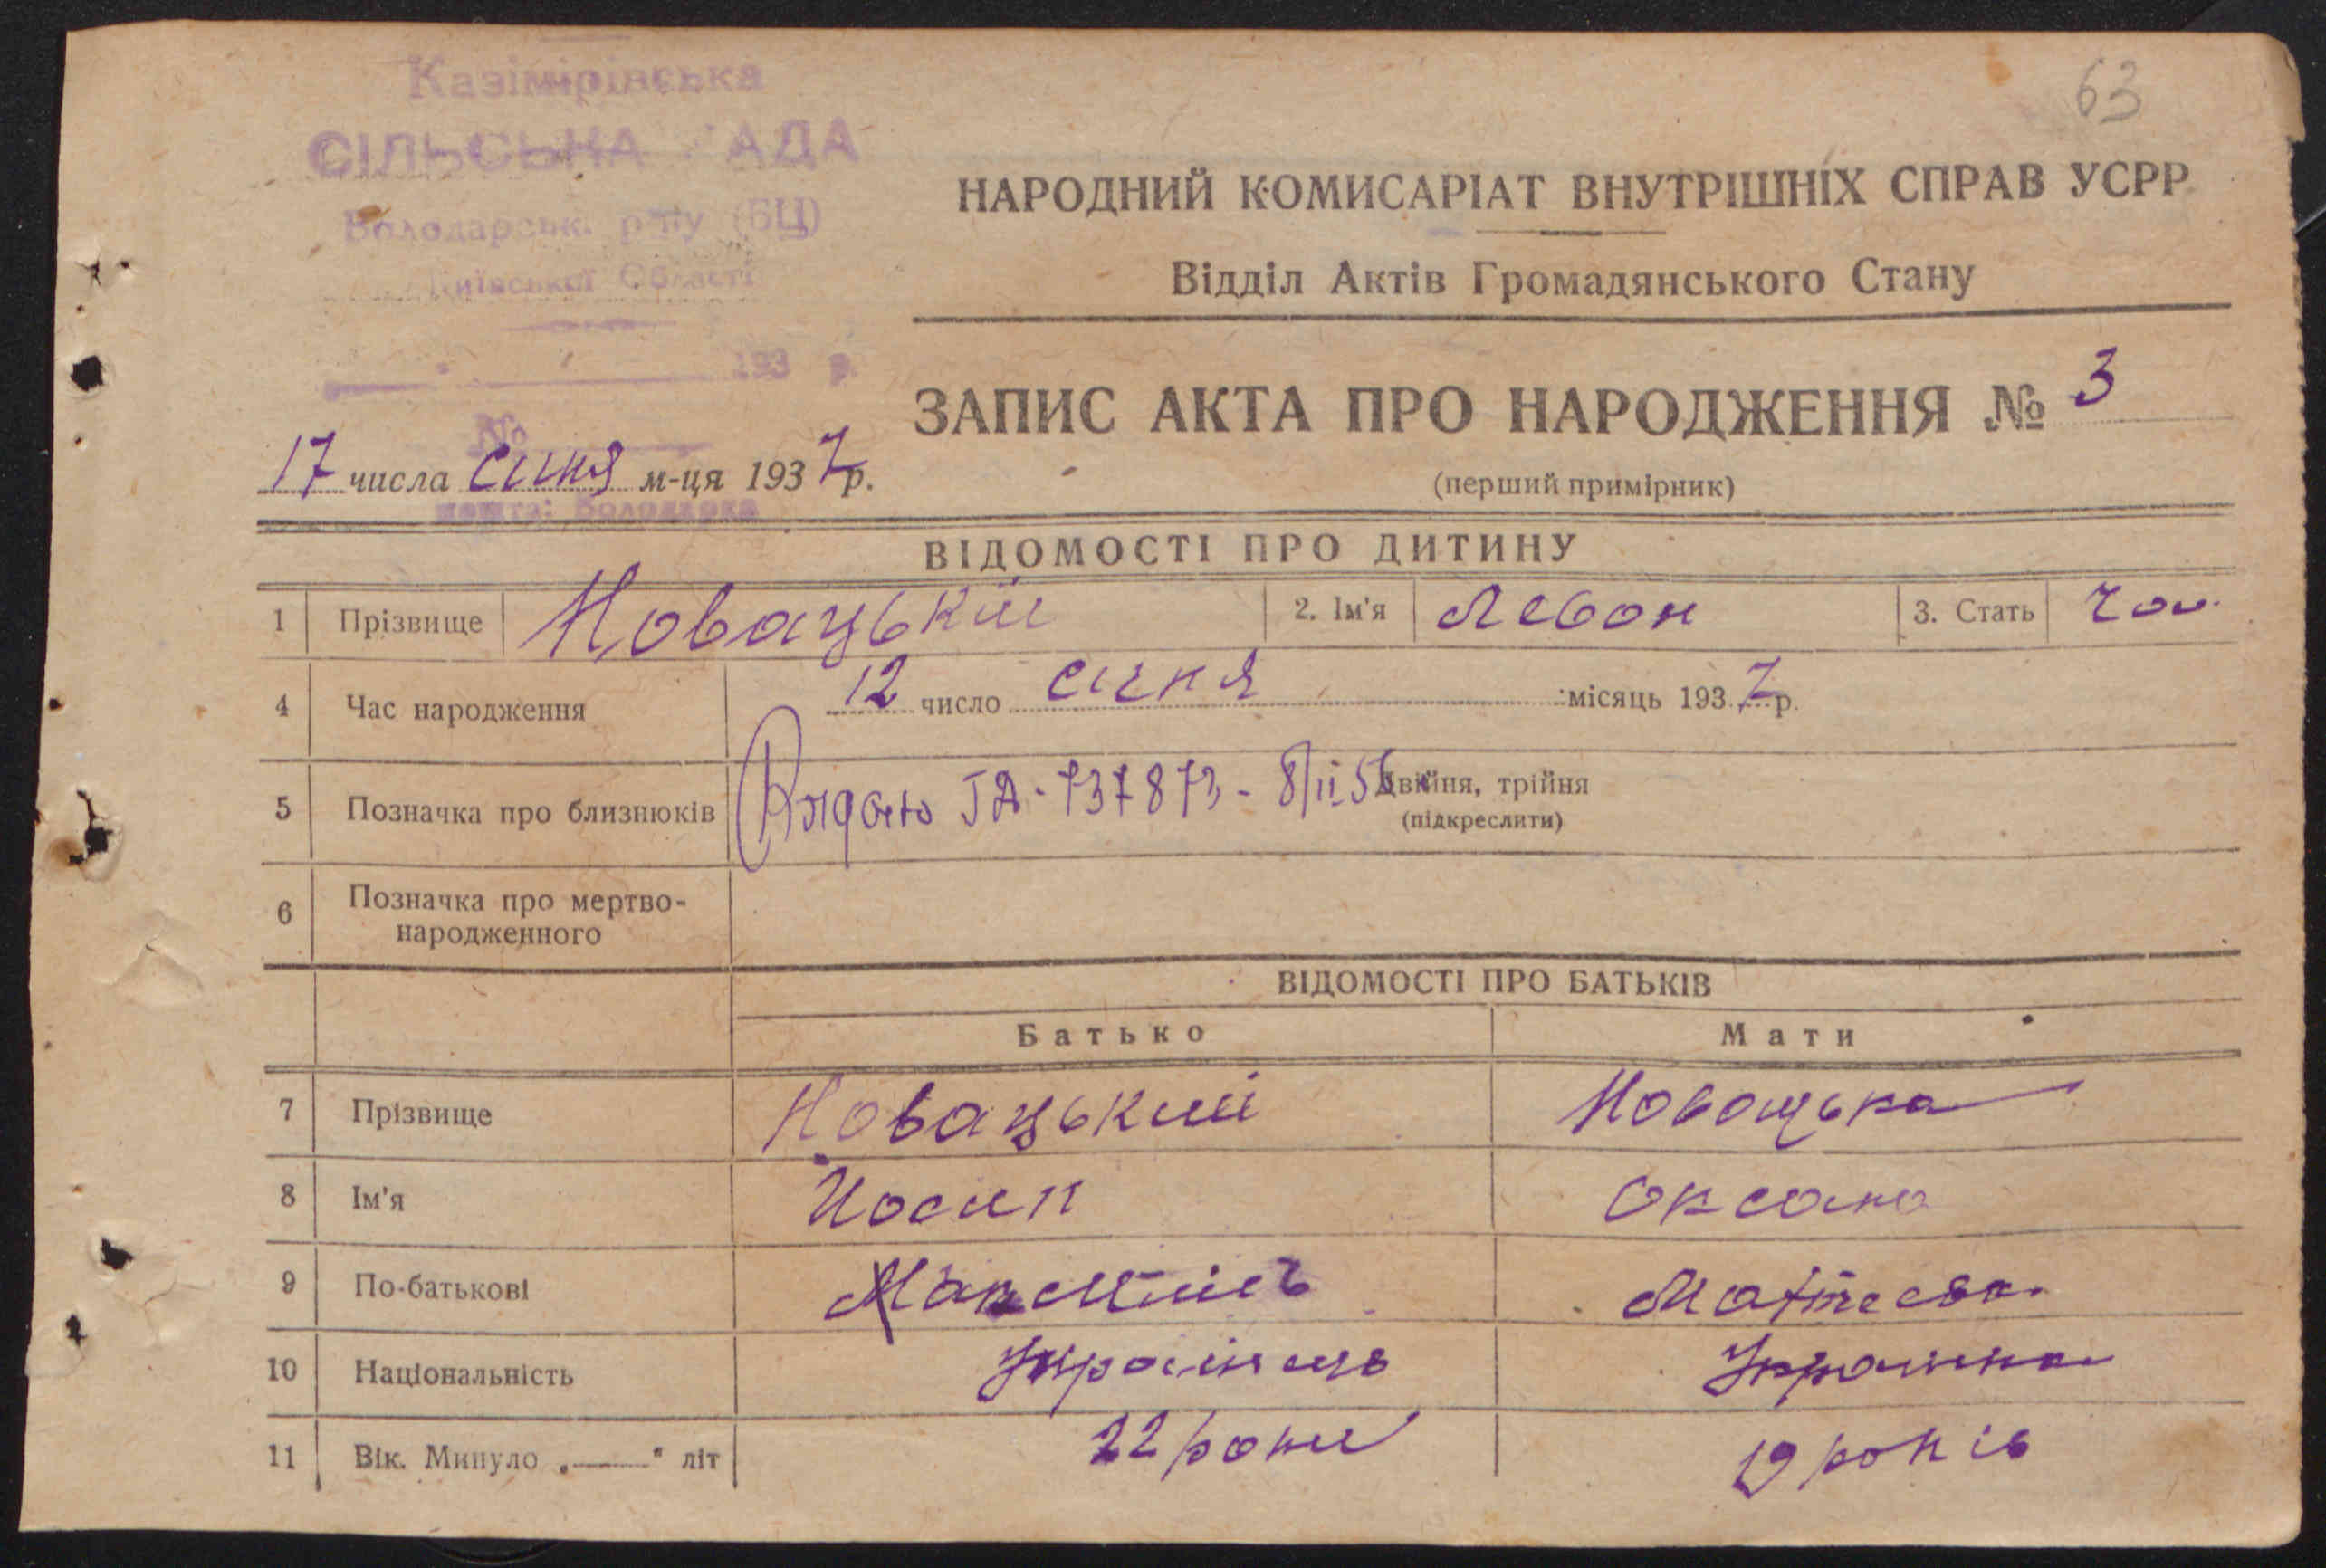 Казімірівська
СІЛЬСЬКА РАДА
Володарськ. р-ну (БЦ)
Київської Області
193 р.
№
63
НАРОДНИЙ КОМИСАРІАТ ВНУТРІШНІХ СПРАВ УСРР
Відділ Актів Громадянського Стану
ЗАПИС АКТА ПРО НАРОДЖЕННЯ № 3
(перший примірник)
17 числа січня м-ця 1937 р.
пошта: Володарка
ВІДОМОСТІ ПРО ДИТИНУ
1 Прізвище Новацький 2. Ім'я Левон 3. Стать чол.
4 Час народження 12 число січня місяць 1937 р.
5 Позначка про близнюків 737873 - 8/II 5 Двійня, трійня
(підкреслити)
6 Позначка про мертво-
народженного
ВІДОМОСТІ ПРО БАТЬКІВ
Батько Мати
7 Прізвище Новацький Новацька
8 Ім'я Йосип Оксана
9 По-батькові
10 Національність Українець Українка
11 Вік. Минуло „——" літ 22 роки 19 років